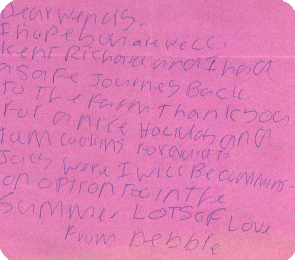 Dear Wendy.
I hope you are well.
Kent Richard and I had
a safe Journey Back
to the Farm Thank you
For a nice Holiday and
I am looking Forward to
July were I will Be cumming
on a in the
Summer LOTS OF Love
From Debbie